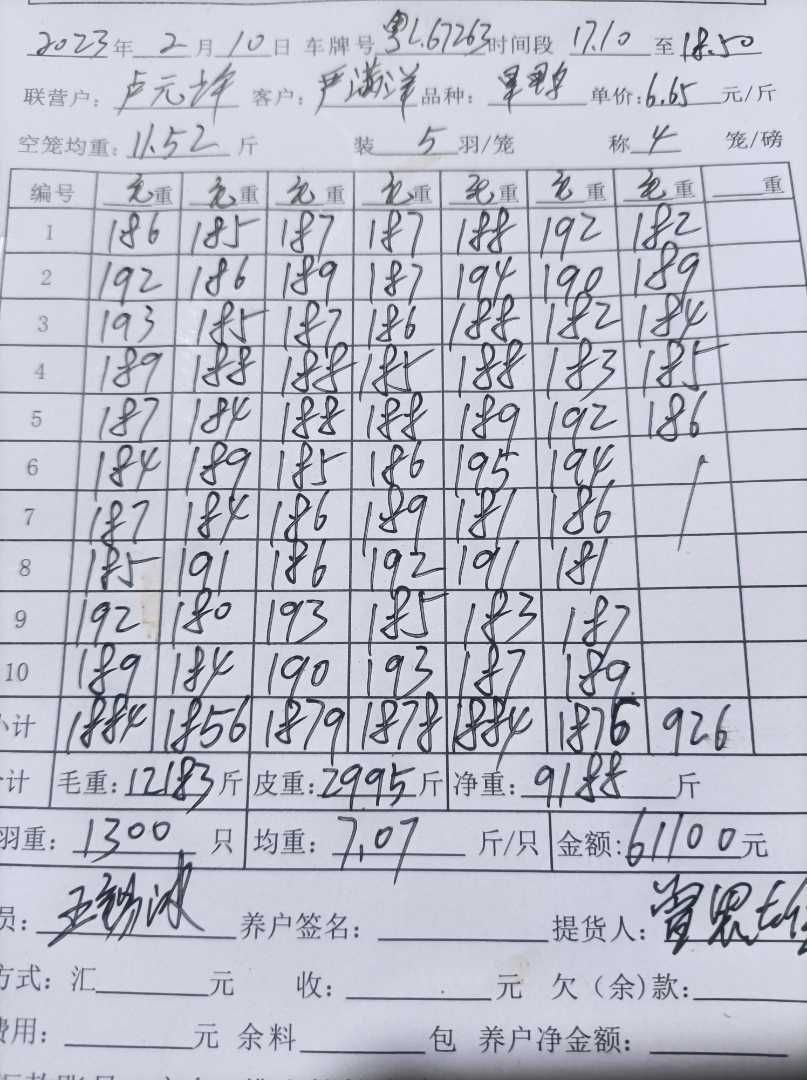 2023年 2月10日 车牌号 粤L67263 时间段 17.10 至 18.50
联营户: 卢元坤 客户: 严满洋 品种: 单价: 6.65 元/斤
空笼均重: 11.52 斤 装 5 羽/笼 称 4 笼/磅
编号 毛重 毛重 毛重 毛重 毛重 毛重 毛重 重
1 186 185 187 187 188 192 182
2 192 186 189 187 194 190 189
3 193 185 187 186 188 182 184
4 189 188 188 185 188 183 185
5 187 184 188 188 189 192 186
6 184 189 185 186 195 194
7 187 184 186 189 181 186
8 185 191 186 192 191 181
9 192 180 193 185 183 187
10 189 184 190 193 187 189
小计 1884 1856 1879 1878 1884 1876 926
计 毛重: 12183 斤 皮重: 2995 斤 净重: 9188 斤
羽重: 1300 只 均重: 7.07 斤/只 金额: 61100 元
员: 养户签名: 提货人:
方式: 汇 元 收: 元 欠(余)款:
费用: 元 余料 包 养户净金额: